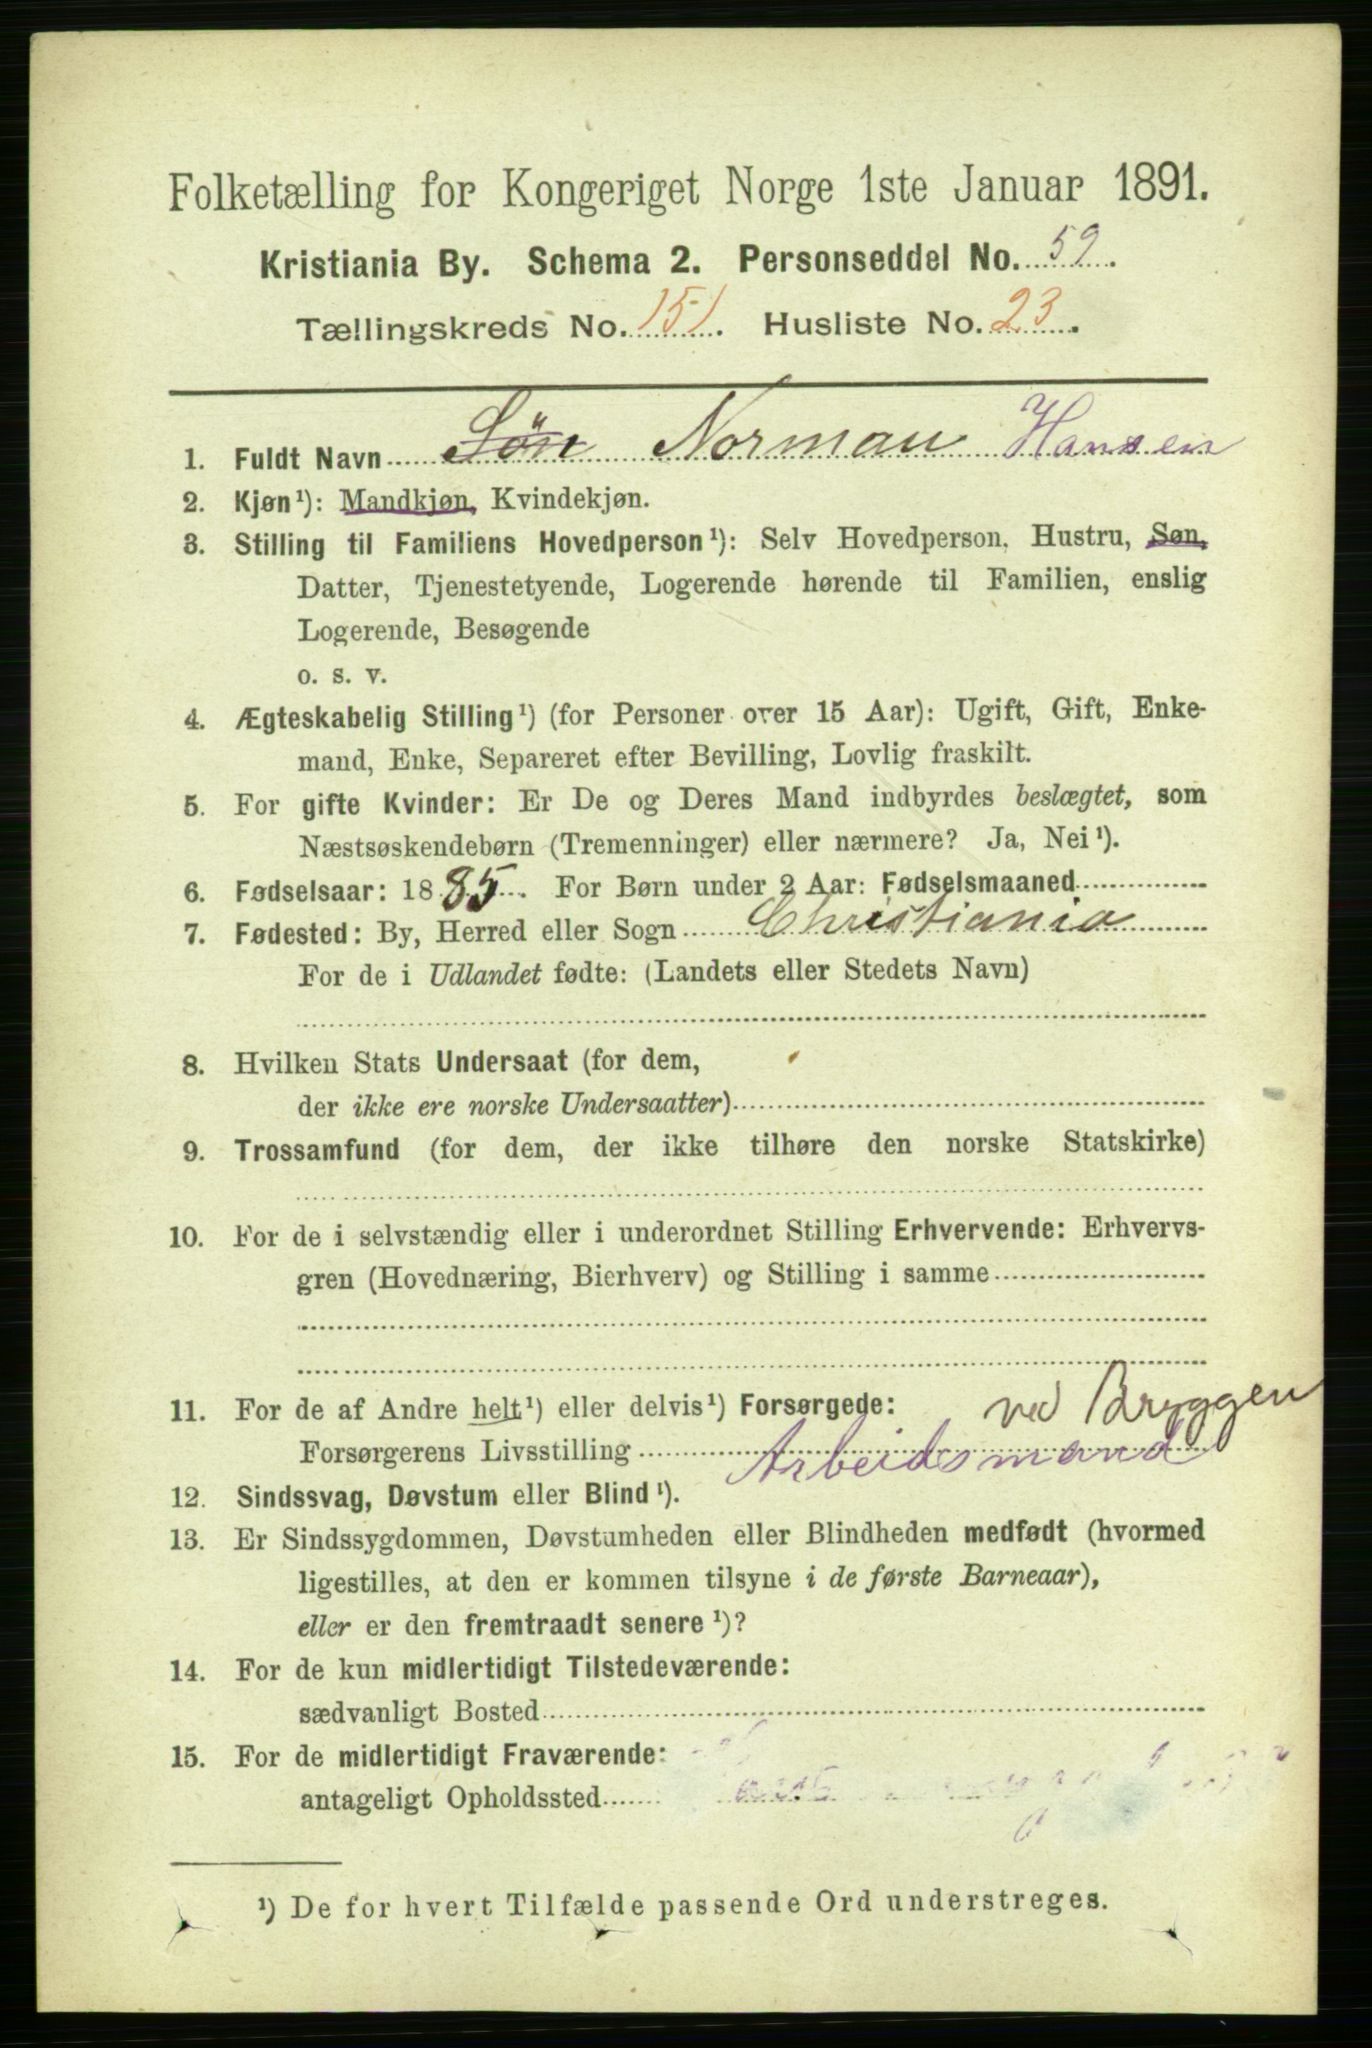 Folketælling for Kongeriget Norge 1ste Januar 1891.
Kristiania By. Schema 2. Personseddel No. 59.
Tællingskreds No. 151. Husliste No. 23.
1. Fuldt Navn Søn Norman Hansen
2. Kjøn¹): Mandkjøn, Kvindekjøn.
3. Stilling til Familiens Hovedperson¹): Selv Hovedperson, Hustru, Søn,
Datter, Tjenestetyende, Logerende hørende til Familien, enslig
Logerende, Besøgende
o. s. v.
4. Ægteskabelig Stilling¹) (for Personer over 15 Aar): Ugift, Gift, Enke-
mand, Enke, Separeret efter Bevilling, Lovlig fraskilt.
5. For gifte Kvinder: Er De og Deres Mand indbyrdes beslægtet, som
Næstsøskendebørn (Tremenninger) eller nærmere? Ja, Nei¹).
6. Fødselsaar: 1885. For Børn under 2 Aar: Fødselsmaaned
7. Fødested: By, Herred eller Sogn Christiania
For de i Udlandet fødte: (Landets eller Stedets Navn)
8. Hvilken Stats Undersaat (for dem,
der ikke ere norske Undersaatter)
9. Trossamfund (for dem, der ikke tilhøre den norske Statskirke)
10. For de i selvstændig eller i underordnet Stilling Erhvervende: Erhvervs-
gren (Hovednæring, Bierhverv) og Stilling i samme
11. For de af Andre helt¹) eller delvis¹) Forsørgede: ved Bryggen
Forsørgerens Livsstilling Arbeidsmand
12. Sindssvag, Døvstum eller Blind¹).
13. Er Sindssygdommen, Døvstumheden eller Blindheden medfødt (hvormed
ligestilles, at den er kommen tilsyne i de første Barneaar),
eller er den fremtraadt senere¹)?
14. For de kun midlertidigt Tilstedeværende:
sædvanligt Bosted
15. For de midlertidigt Fraværende:
antageligt Opholdssted
¹) De for hvert Tilfælde passende Ord understreges.